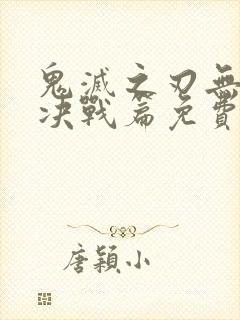 鬼滅之刃無
決戰篇免費
唐穎小